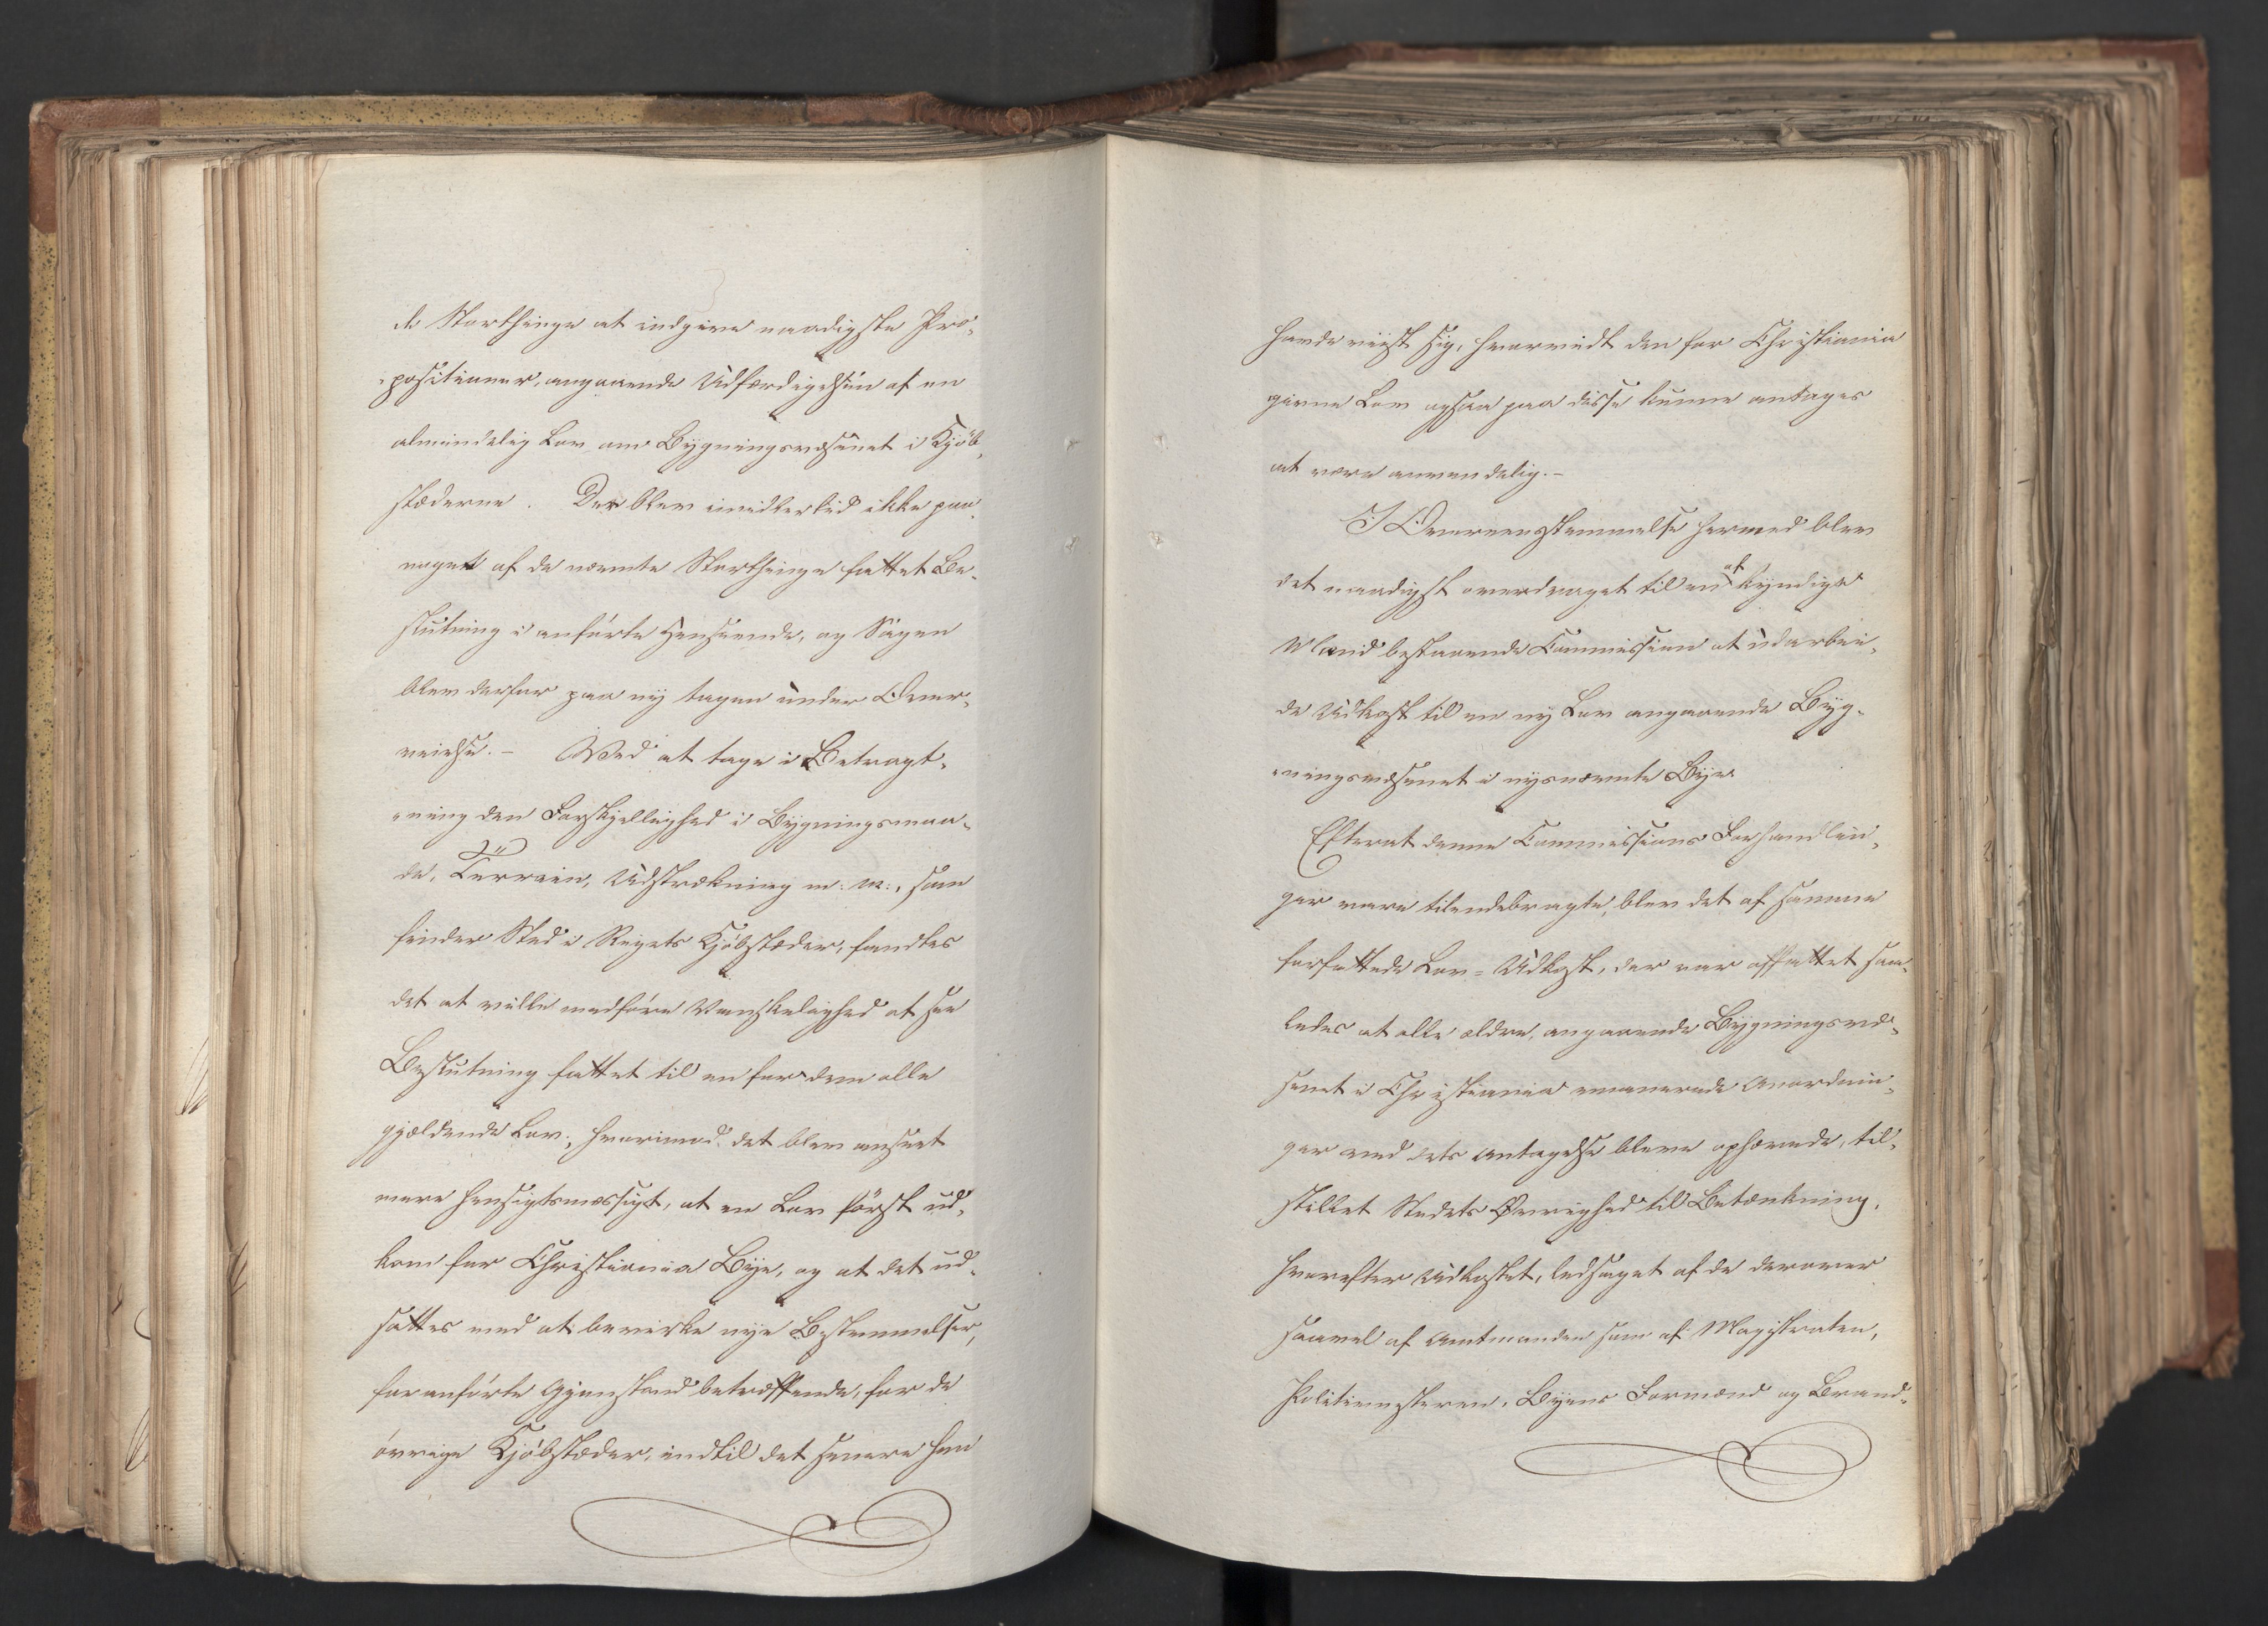 de Storthinge at indgive naadigste Pro-
positioner, angaaende Udfærdigelsen af en
almindelig Lov om Bygningsvæsenet i Kjöb-
stæderne. Der blev imidlertid ikke paa
noget af de nævnte Storthinge fattet Be-
slutning i anförte Henseende, og Sagen
blev derfor paa ny tagen under Over-
veielse. – Ved at tage i Betragt-
ning den Forskjellighed i Bygningsmaa-
de, Terrain, Udstrækning m: m:, som
finder Sted i Rigets Kjöbstæder, fandtes
det at ville medföre Vanskelighed at see
Beslutning fattet til en for dem alle
gjældende Lov; hvorimod det blev anseet
mere hensigtsmæssigt, at en Lov först ud-
kom for Christiania Bye, og at det ud-
sattes med at bevirke nye Bestemmelser,
for anförte Gjenstand betræffende, for de
övrige Kjöbstæder, indtil det senere hen
havde viist sig, hvorvidt den for Christiania
givne Lov ogsaa paa disse kunne antages
at være anvendelig. –
I Overeensstemmelse hermed blev
det naadigst overdraget til en af kyndige
Mænd bestaaende Commission at udarbei-
de Udkast til en ny Lov angaaende Byg-
ningsvæsenet i nysnævnte Bye.
Efterat denne Commissions Forhandlin-
ger vare tilendebragte, blev det af samme
forfattede Lov-Udkast, der var affattet saa-
ledes at alle ældre, angaaende Bygningsvæ-
senet i Christiania emanerede Anordnin-
ger med dets Antagelse bleve ophævede, til-
stillet Stedets Øvrighed til Betænkning,
hvorefter Udkastet, ledsaget af de derover
saavel af Amtmanden som af Magistraten,
Politiemesteren, Byens Formænd og Brand-